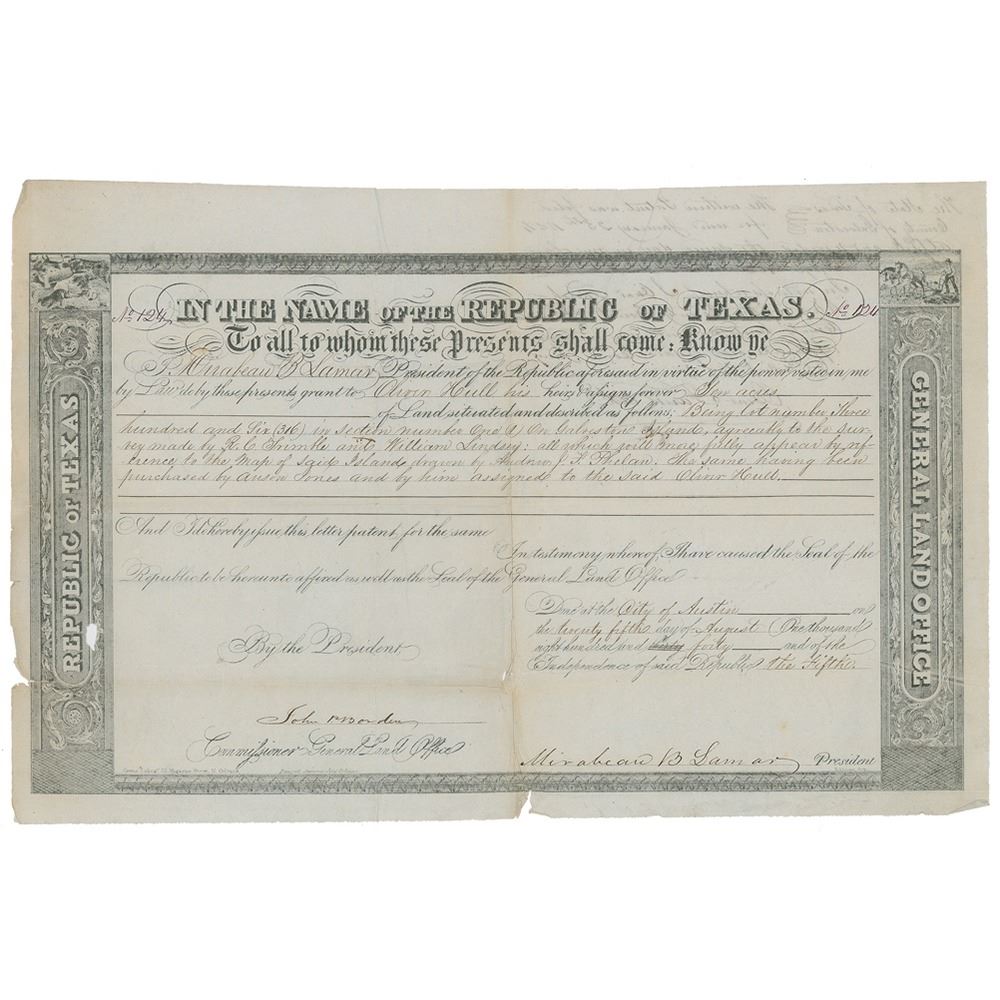 No 124 IN THE NAME OF THE REPUBLIC OF TEXAS. No 124
To all to whom these Presents shall come: Know ye
I, Mirabeau B Lamar President of the Republic aforesaid in virtue of the power vested in me
by Law do by these presents grant to Oliver Hull his heirs & assigns forever Ten acres
of Land setuated and described as follows; Being lot number Three
hundred and Six (316) in section number One (1) On Galveston Island, agreeably to the sur-
vey made by R. C. Trimble and William Lindsey: all which will more fully appear by ref-
erence to the Map of said Island drawn by Andrew J. S. Phelan. The same having been
purchased by Anson Jones and by him assigned to the said Oliver Hull.
And I do hereby issue this letter patent for the same
In testimony whereof I have caused the Seal of the
Republic to be hereunto affixed as well as the Seal of the General Land Office
Done at the City of Austin on
the twenty fifth day of August One thousand
eight hundred and thirty forty and of the
Independence of said Republic the Fifth
By the President
John P Borden
Commissioner General Land Office
Mirabeau B Lamar President
REPUBLIC OF TEXAS
GENERAL LAND OFFICE